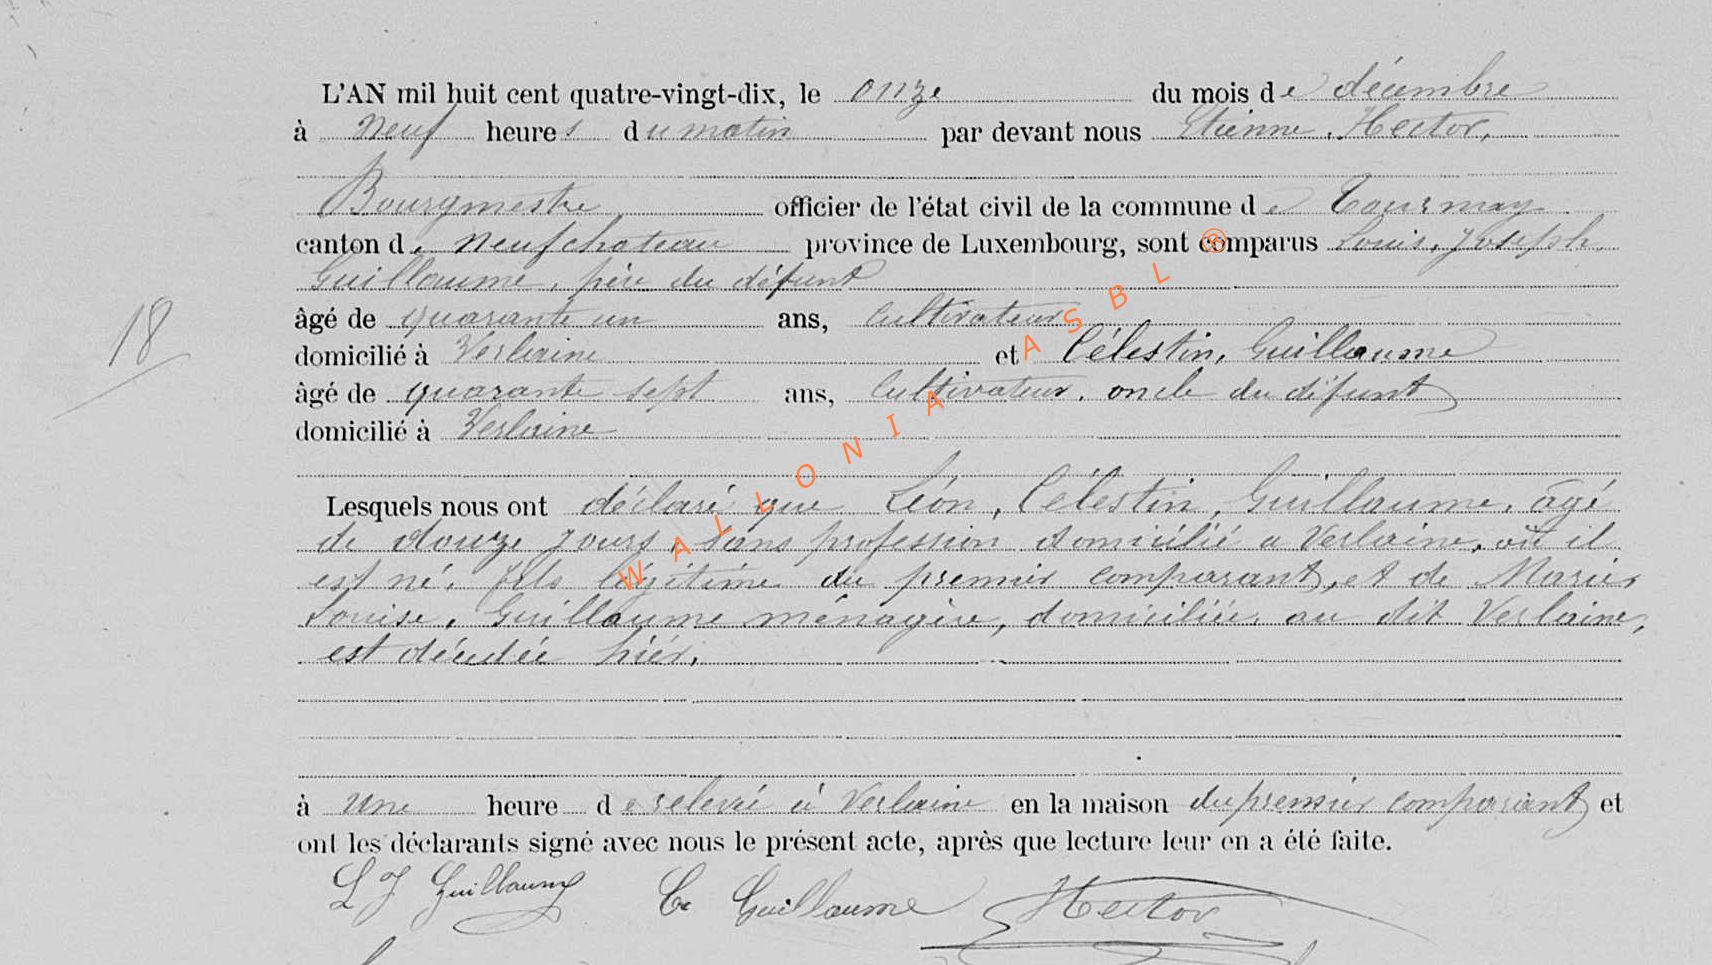 L'AN mil huit cent quatre-vingt-dix, le onze du mois de décembre
à neuf heures du matin par devant nous Etienne, Hector,
Bourgmestre officier de l'état civil de la commune de Tournay
canton de Neufchateau province de Luxembourg, sont comparus Louis, Joseph,
Guillaume, père du défunt
âgé de quarante un ans, cultivateur
domicilié à Verlaine et Célestin, Guillaume
âgé de quarante sept ans, cultivateur, oncle du défunt
domicilié à Verlaine
18
Lesquels nous ont déclaré que Léon, Célestin, Guillaume, âgé
de douze jours, sans profession domicilié a Verlaine, où il
est né, fils légitime du premier comparant, et de Marie,
Louise, Guillaume ménagère, domiciliée au dit Verlaine,
est décédée hier,
à une heure de relevée à Verlaine en la maison du premier comparant et
ont les déclarants signé avec nous le présent acte, après que lecture leur en a été faite.
L J Guillaume C. Guillaume Hector
WALLONIA ASBL ®